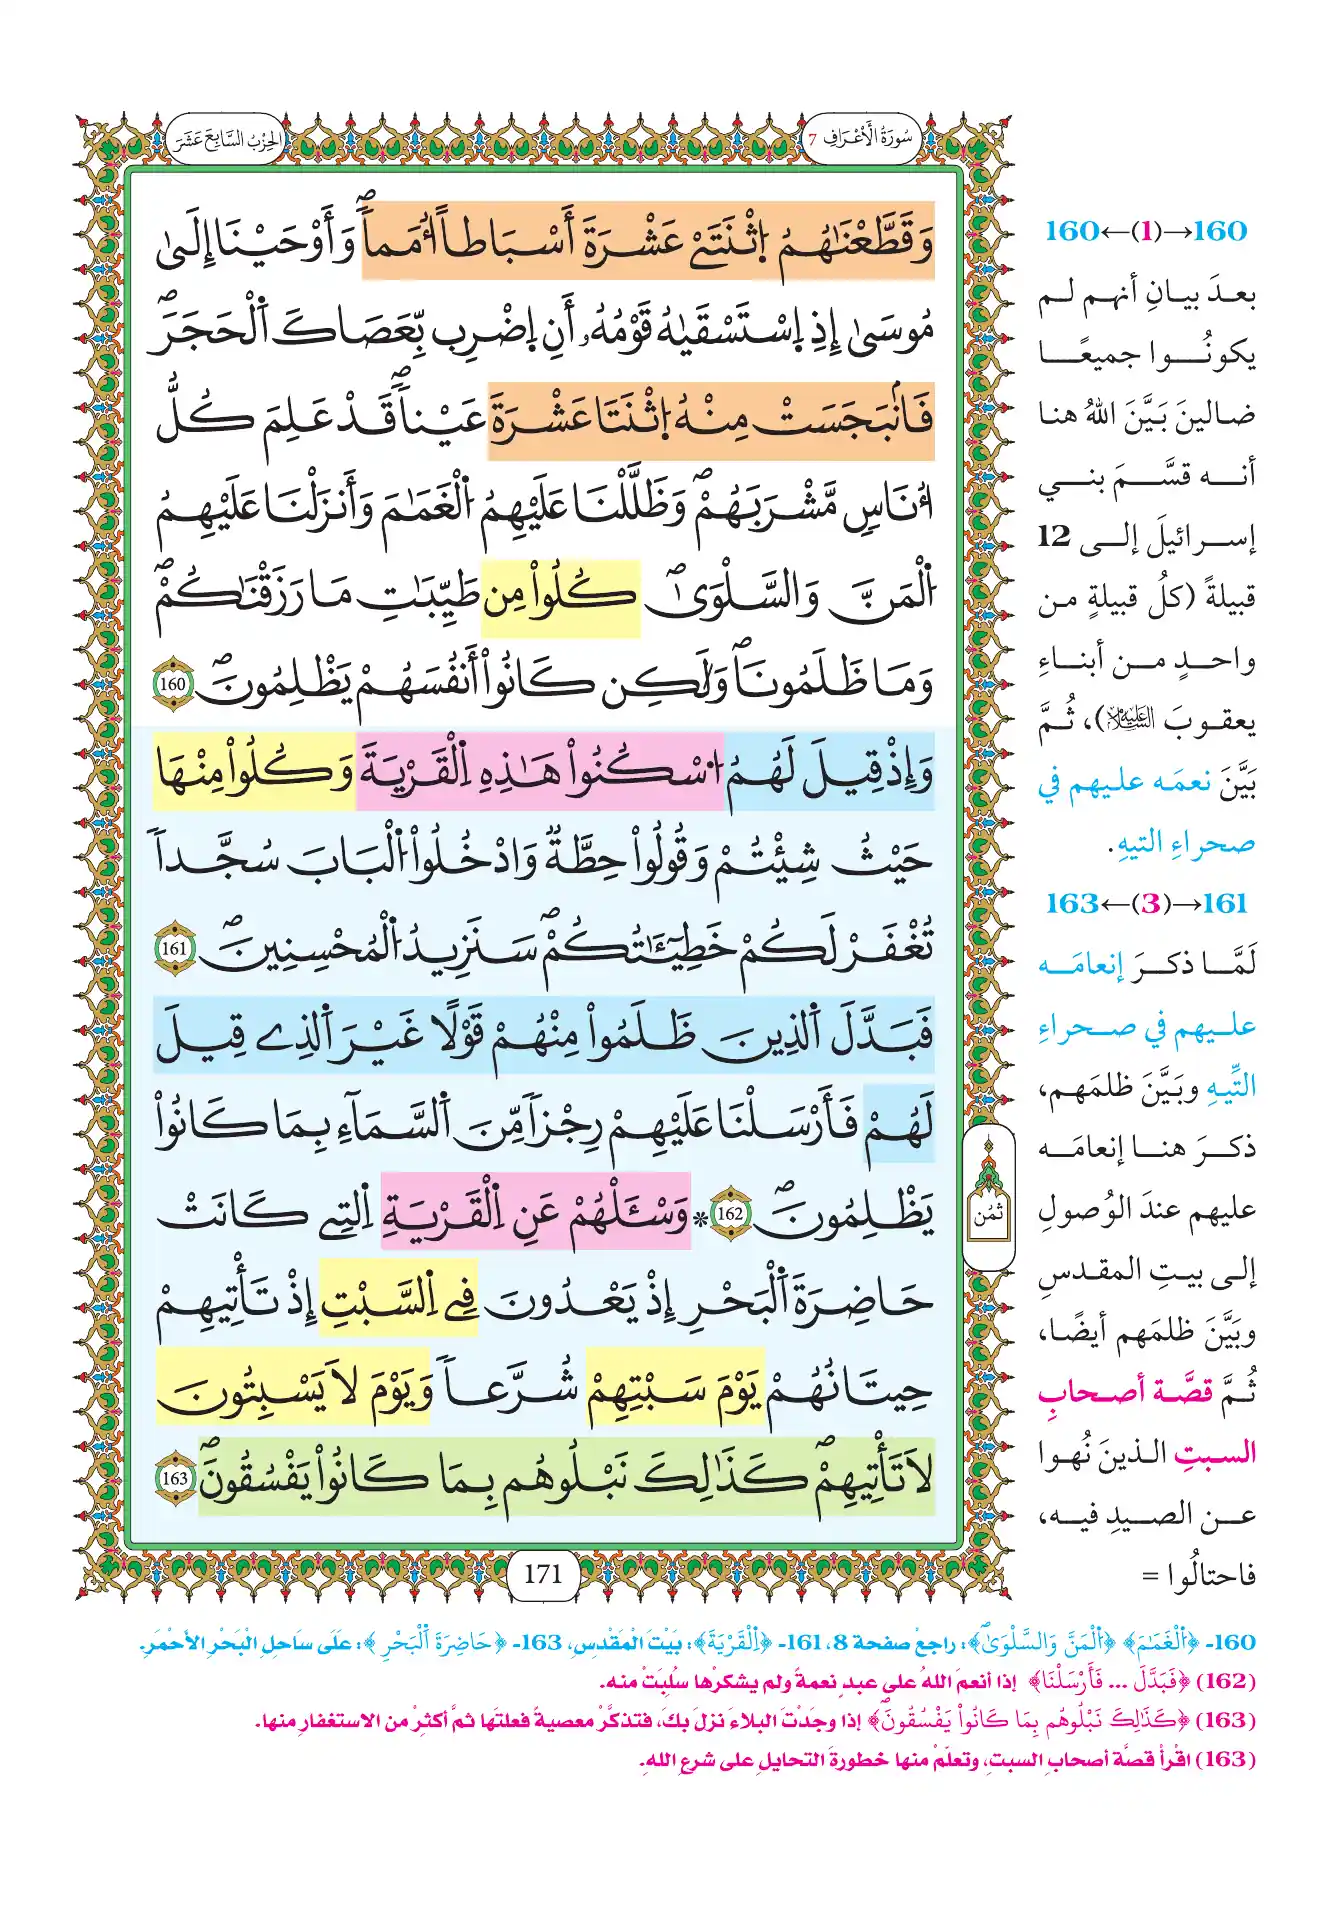 سُورَةُ الْأَعْرَافِ 7
الحِزْبُ السَّابِعَ عَشَرَ
وَقَطَّعْنَٰهُمُ اُ۪ثْنَتَےْ عَشْرَةَ أَسْبَاطاً اُمَماٗۖ وَأَوْحَيْنَا إِلَىٰ
مُوسَىٰ إِذِ اِ۪سْتَسْقَيٰهُ قَوْمُهُۥ أَنِ اِ۪ضْرِب بِّعَصَاكَ اَ۬لْحَجَرَۖ
فَانۢبَجَسَتْ مِنْهُ اُ۪ثْنَتَا عَشْرَةَ عَيْناٗۖ قَدْ عَلِمَ كُلُّ
اُنَاسٖ مَّشْرَبَهُمْۖ وَظَلَّلْنَا عَلَيْهِمُ اُ۬لْغَمَٰمَ وَأَنزَلْنَا عَلَيْهِمُ
اُ۬لْمَنَّ وَالسَّلْوَىٰۖ كُلُواْ مِن طَيِّبَٰتِ مَا رَزَقْنَٰكُمْۖ
وَمَا ظَلَمُونَاۖ وَلَٰكِن كَانُواْ أَنفُسَهُمْ يَظْلِمُونَۖ 160
وَإِذْ قِيلَ لَهُمُ اُ۟سْكُنُواْ هَٰذِهِ اِ۬لْقَرْيَةَ وَكُلُواْ مِنْهَا
حَيْثُ شِئْتُمْ وَقُولُواْ حِطَّةٞ وَادْخُلُواْ اُ۬لْبَابَ سُجَّداٗ
تُغْفَرْ لَكُمْ خَطِيٓـَٰٔتُكُمْۖ سَنَزِيدُ اُ۬لْمُحْسِنِينَۖ 161
فَبَدَّلَ اَ۬لذِينَ ظَلَمُواْ مِنْهُمْ قَوْلًا غَيْرَ اَ۬لذِے قِيلَ
لَهُمْ فَأَرْسَلْنَا عَلَيْهِمْ رِجْزاٗ مِّنَ اَ۬لسَّمَآءِ بِمَا كَانُواْ
يَظْلِمُونَۖ 162 * وَسْـَٔلْهُمْ عَنِ اِ۬لْقَرْيَةِ اِ۬لتِے كَانَتْ
حَاضِرَةَ اَ۬لْبَحْرِ إِذْ يَعْدُونَ فِے اِ۬لسَّبْتِ إِذْ تَأْتِيهِمْ
حِيتَانُهُمْ يَوْمَ سَبْتِهِمْ شُرَّعاٗ وَيَوْمَ لَا يَسْبِتُونَ
لَا تَأْتِيهِمْۖ كَذَٰلِكَ نَبْلُوهُم بِمَا كَانُواْ يَفْسُقُونَۖ 163
ثمُن
171
160←(1)→160
بعدَ بيانِ أنهم لم
يكونُوا جميعًا
ضالينَ بَيَّنَ اللهُ هنا
أنه قسَّمَ بني
إسرائيلَ إلى 12
قبيلةً (كلُ قبيلةٍ من
واحدٍ من أبناءِ
يعقوبَ عليه السلام)، ثُمَّ
بَيَّنَ نعمَه عليهم في
صحراءِ التيهِ.
163←(3)→161
لَمَّا ذكرَ إنعامَه
عليهم في صحراءِ
التِّيهِ وبَيَّنَ ظلمَهم،
ذكرَ هنا إنعامَه
عليهم عندَ الوُصولِ
إلى بيتِ المقدسِ
وبَيَّنَ ظلمَهم أيضًا،
ثُمَّ قصَّة أصحابِ
السبتِ الذينَ نُهوا
عن الصيدِ فيه،
فاحتالُوا =
160- ﴿اَ۬لْغَمَٰمَ﴾ ﴿اُ۬لْمَنَّ وَالسَّلْوَىٰۖ﴾: راجعْ صفحة 8، 161- ﴿اِ۬لْقَرْيَةَ﴾: بَيْتَ الْمَقْدِسِ، 163- ﴿حَاضِرَةَ اَ۬لْبَحْرِ﴾: عَلَى سَاحِلِ الْبَحْرِ الأَحْمَرِ.
(162) ﴿فَبَدَّلَ ... فَأَرْسَلْنَا﴾ إذا أنعمَ اللهُ على عبدٍ نعمةً ولم يشكرْها سُلِبَتْ منه.
(163) ﴿كَذَٰلِكَ نَبْلُوهُم بِمَا كَانُواْ يَفْسُقُونَۖ﴾ إذا وجدْتَ البلاءَ نزلَ بكَ، فتذكَّرْ معصيةً فعلتَها ثمَّ أكثِرْ من الاستغفارِ منها.
(163) اقْرأْ قصَّة أصحابِ السبتِ، وتعلَّمْ منها خطورةَ التحايلِ على شرعِ اللهِ.